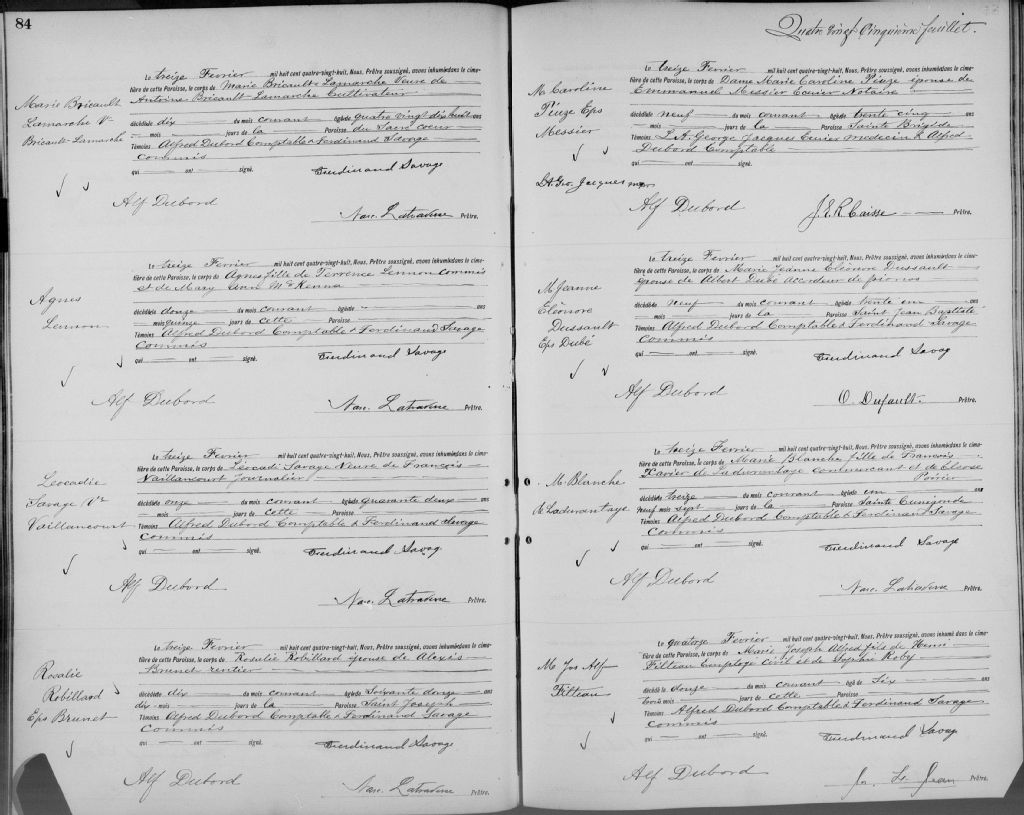 84
Marie Bricault
Lamarche Ve
Bricault-Lamarche
Le treize Fevrier mil huit cent quatre-vingt-huit, Nous, Prêtre soussigné, avons inhumé dans le cime-
tière de cette Paroisse, le corps de Marie Bricault-Lamarche Veuve de
Antoine Bricault-Lamarche Cultivateur
décédée le dix du mois courant âgée de quatre vingt dix huit ans
— mois — jours de la Paroisse du Sacré coeur
Témoins Alfred Dubord Comptable & Ferdinand Savage
Commis
qui — ont — signé. Ferdinand Savage
Alf Dubord
Narc. Prêtre.
Agnes
Lennon
Le treize Fevrier mil huit cent quatre-vingt-huit, Nous, Prêtre soussigné, avons inhumé dans le cime-
tière de cette Paroisse, le corps de Agnes fille de Terrence Lennon commis
et de Mary Ann McKenna
décédée le douze du mois courant âgée de — ans
— mois quinze jours de cette Paroisse
Témoins Alfred Dubord Comptable & Ferdinand Savage
Commis
qui — ont — signé. Ferdinand Savage
Alf Dubord
Narc. Prêtre.
Leocadie
Savage Ve
Vaillancourt
Le treize Fevrier mil huit cent quatre-vingt-huit, Nous, Prêtre soussigné, avons inhumé dans le cime-
tière de cette Paroisse, le corps de Léocadi Savage Veuve de François
Vaillancourt Journalier
décédée le onze du mois courant âgée de quarante deux ans
— mois — jours de cette Paroisse
Témoins Alfred Dubord Comptable & Ferdinand Savage
Commis
qui — ont — signé. Ferdinand Savag
Alf Dubord
Narc. Prêtre.
Rosalie
Robillard
Eps Brunet
Le treize Fevrier mil huit cent quatre-vingt-huit, Nous, Prêtre soussigné, avons inhumé dans le cime-
tière de cette Paroisse, le corps de Rosalie Robillard épouse de Alexis
Brunet rentier
décédée le dix du mois courant âgée de Soixante douze ans
dix mois — jours de la Paroisse Saint Joseph
Témoins Alfred Dubord Comptable & Ferdinand Savage
Commis
qui — ont — signé. Ferdinand Savage
Alf Dubord
Narc. Prêtre.
Quatre vingt Cinquième feuillet.
M. Caroline
Piuze Eps
Messier
Le treize Fevrier mil huit cent quatre-vingt-huit, Nous, Prêtre soussigné, avons inhumé dans le cime-
tière de cette Paroisse, le corps de Dame Marie Caroline Piuze épouse de
Emmanuel Messier Ecuier Notaire
décédée le neuf du mois courant âgée de trente cinq ans
— mois — jours de la Paroisse Sainte Brigide
Témoins L. A. George Jacques Ecuier medecin & Alfred
Dubord Comptable
qui — ont — signé.
Geo. Jacques
Alf Dubord
J.E.R. Caisse Prêtre.
M. Jeanne
Eléonore
Dussault
Eps Dubé
Le treize Fevrier mil huit cent quatre-vingt-huit, Nous, Prêtre soussigné, avons inhumé dans le cime-
tière de cette Paroisse, le corps de Marie Jeanne Eléonore Dussault
épouse de Albert Dubé Accordeur de pianos
décédée le neuf du mois courant âgée de trente un ans
— mois — jours de la Paroisse Saint Jean Baptiste
Témoins Alfred Dubord Comptable & Ferdinand Savage
Commis
qui — ont — signé. Ferdinand Savag
Alf Dubord
O. Dufault. Prêtre.
M. Blanche
Ladurantaye
Le treize Fevrier mil huit cent quatre-vingt-huit, Nous, Prêtre soussigné, avons inhumé dans le cime-
tière de cette Paroisse, le corps de Marie Blanche fille de François
Xavier de Ladurantaye commercant et de
Poirier
décédée le treize du mois courant âgée de un
neuf mois sept jours de la Paroisse Sainte Cunégonde
Témoins Alfred Dubord Comptable & Ferdinand Savage
Commis
qui — ont — signé. Ferdinand Savage
Alf Dubord
Narc. Prêtre.
M. Jos Alf
Filteau
Le quatorze Fevrier mil huit cent quatre-vingt-huit, Nous, Prêtre soussigné, avons inhumé dans le cime-
tière de cette Paroisse, le corps de Marie Joseph Alfred fils de Henri
Filteau Employé civil et de Sophie Roby
décédé le douze du mois courant âgé de Six ans
trois mois — jours de cette Paroisse
Témoins Alfred Dubord Comptable & Ferdinand Savage
Commis
qui — ont — signé. Ferdinand Savag
Alf Dubord
Prêtre.